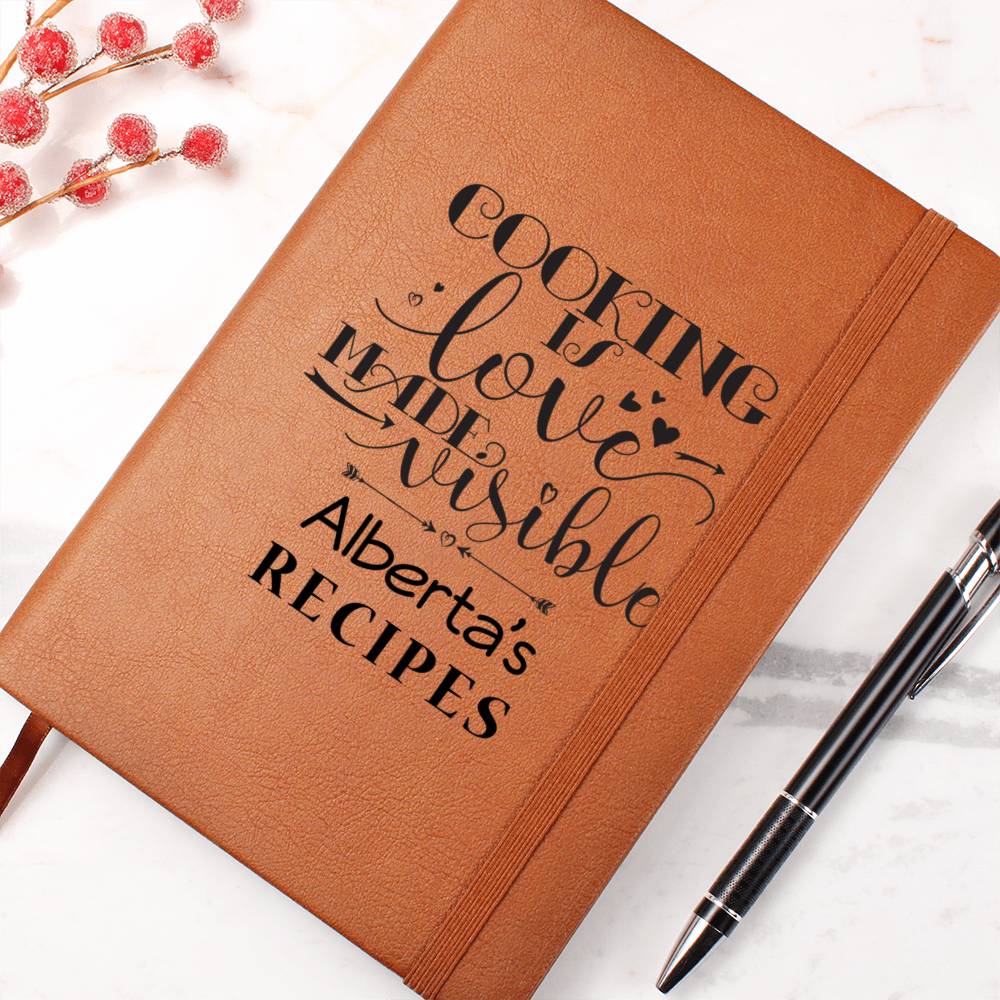 COOKING
IS
love
MADE
visible
Alberta's
RECIPES